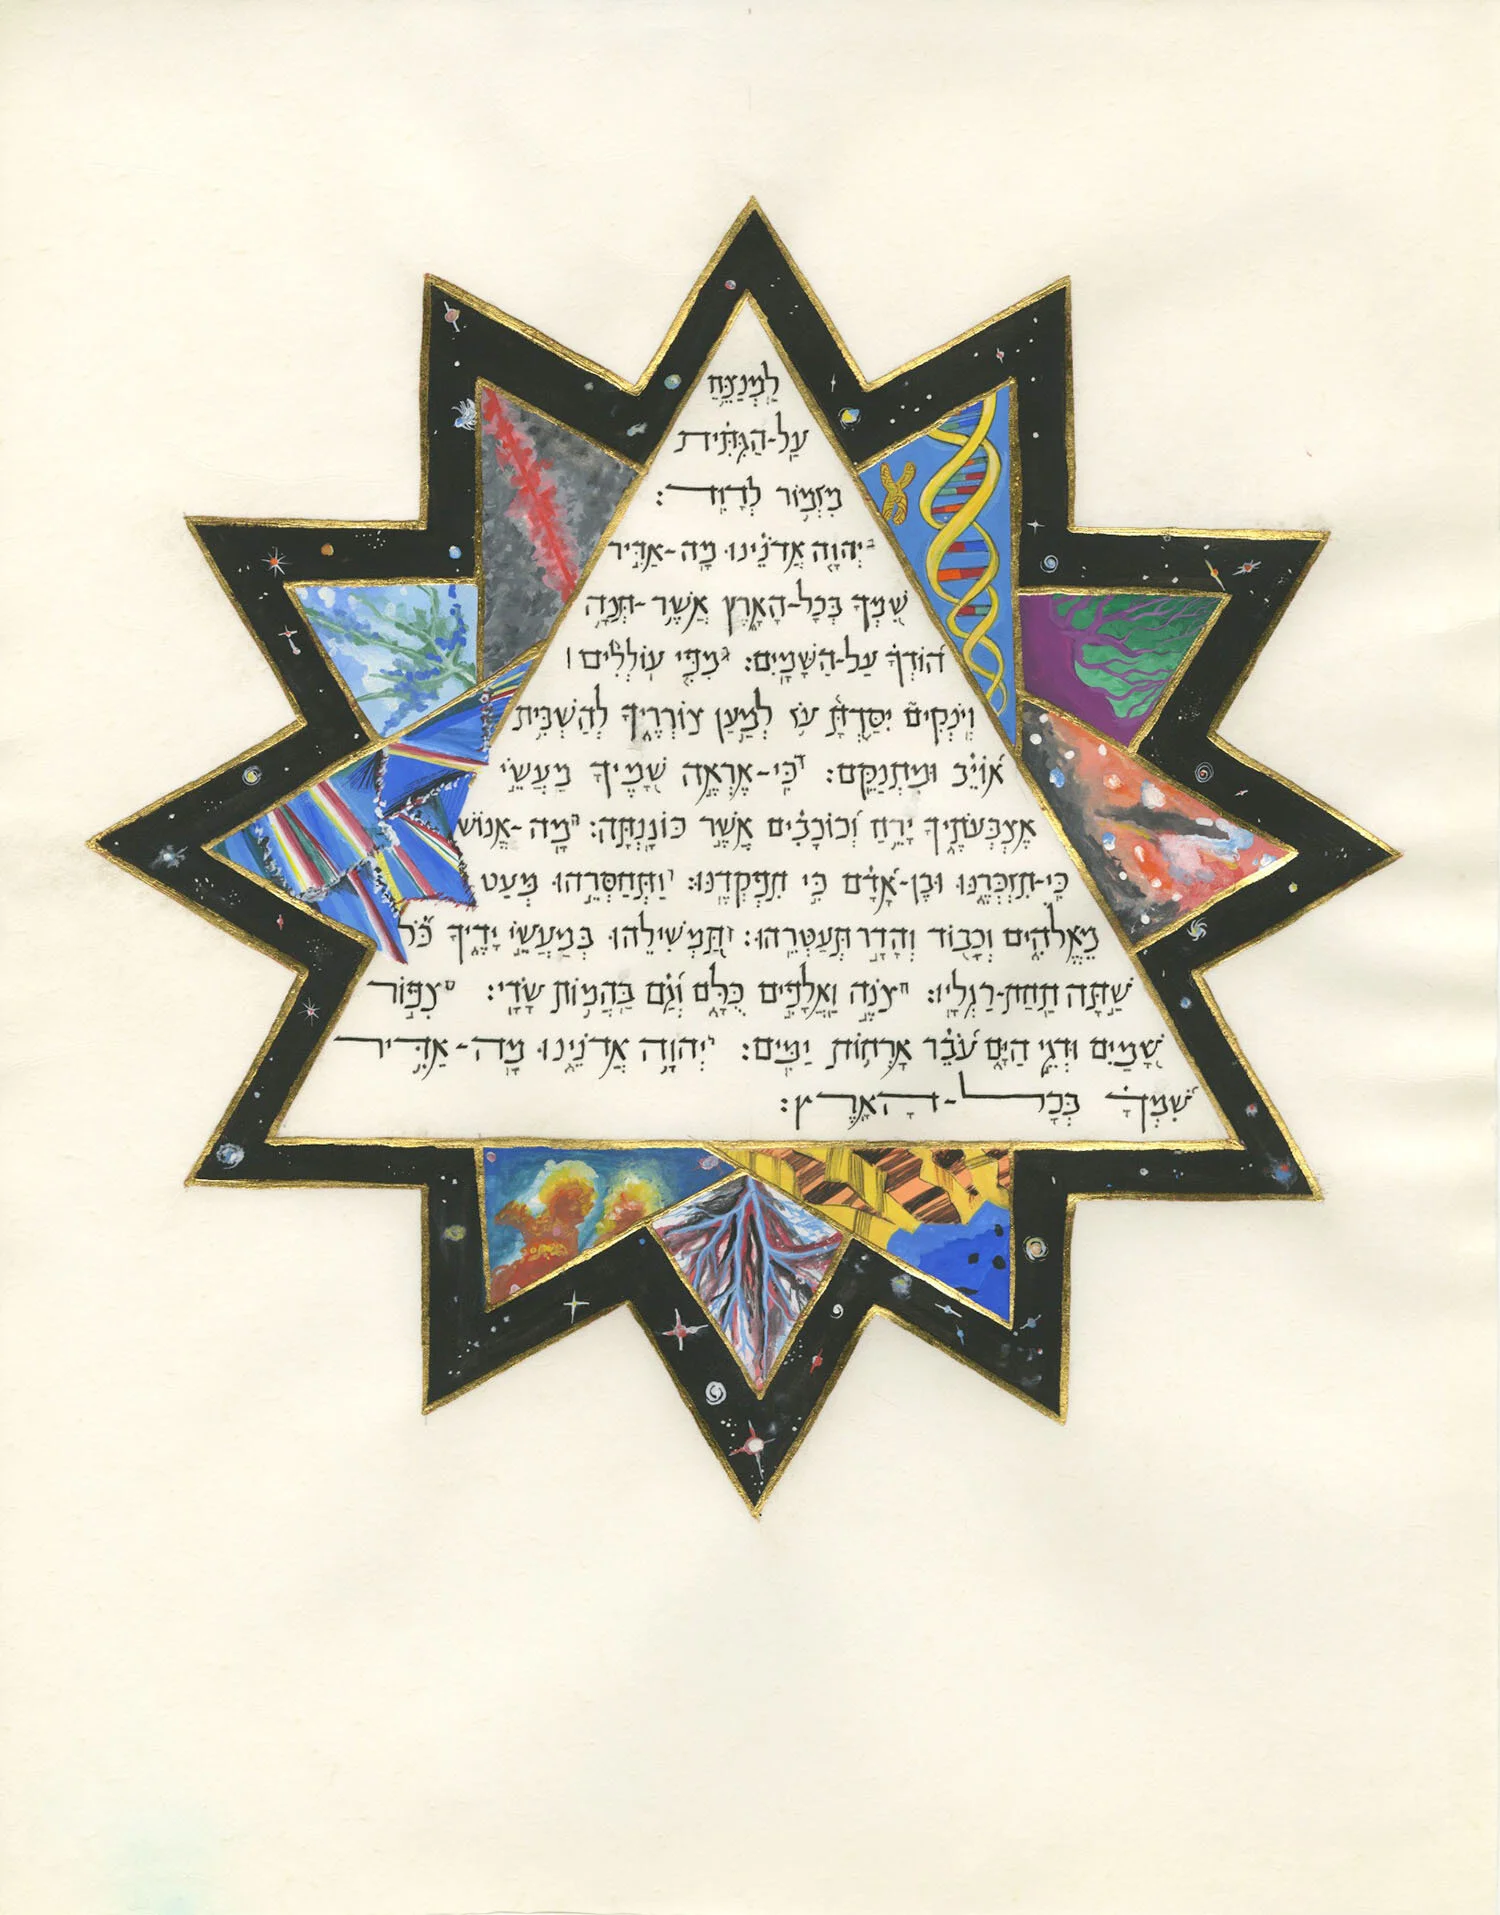 לַמְנַצֵּ֥חַ
עַֽל־הַגִּתִּ֗ית
מִזְמ֥וֹר לְדָוִֽד׃
ב יְהוָ֤ה אֲדֹנֵ֗ינוּ מָֽה־אַדִּ֣יר
שִׁ֭מְךָ בְּכָל־הָאָ֑רֶץ אֲשֶׁ֥ר־תְּנָ֥ה
ה֝וֹדְךָ֗ עַל־הַשָּׁמָֽיִם׃ ג מִפִּ֤י עֽוֹלְלִ֨ים ׀
וְֽיֹנְקִים֮ יִסַּ֪דְתָּ֫ עֹ֥ז לְמַ֥עַן צוֹרְרֶ֑יךָ לְהַשְׁבִּ֥ית
א֝וֹיֵ֗ב וּמִתְנַקֵּֽם׃ ד כִּֽי־אֶרְאֶ֣ה שָׁ֭מֶיךָ מַעֲשֵׂ֣י
אֶצְבְּעֹתֶ֑יךָ יָרֵ֥חַ וְ֝כוֹכָבִ֗ים אֲשֶׁ֣ר כּוֹנָֽנְתָּה׃ ה מָֽה־אֱנ֥וֹשׁ
כִּֽי־תִזְכְּרֶ֑נּוּ וּבֶן־אָ֝דָ֗ם כִּ֣י תִפְקְדֶֽנּוּ׃ ו וַתְּחַסְּרֵ֣הוּ מְּ֭עַט
מֵאֱלֹהִ֑ים וְכָב֖וֹד וְהָדָ֣ר תְּעַטְּרֵֽהוּ׃ ז תַּ֭מְשִׁילֵהוּ בְּמַעֲשֵׂ֣י יָדֶ֑יךָ כֹּ֝֗ל
שַׁ֣תָּה תַֽחַת־רַגְלָֽיו׃ ח צֹנֶ֣ה וַאֲלָפִ֣ים כֻּלָּ֑ם וְ֝גַ֗ם בַּהֲמ֥וֹת שָׂדָֽי׃ ט צִפּ֣וֹר
שָׁ֭מַיִם וּדְגֵ֣י הַיָּ֑ם עֹ֝בֵ֗ר אָרְח֥וֹת יַמִּֽים׃ י יְהוָ֥ה אֲדֹנֵ֑ינוּ מָֽה־אַדִּ֥יר
שִׁ֝מְךָ֗ בְּכָל־הָאָֽרֶץ׃